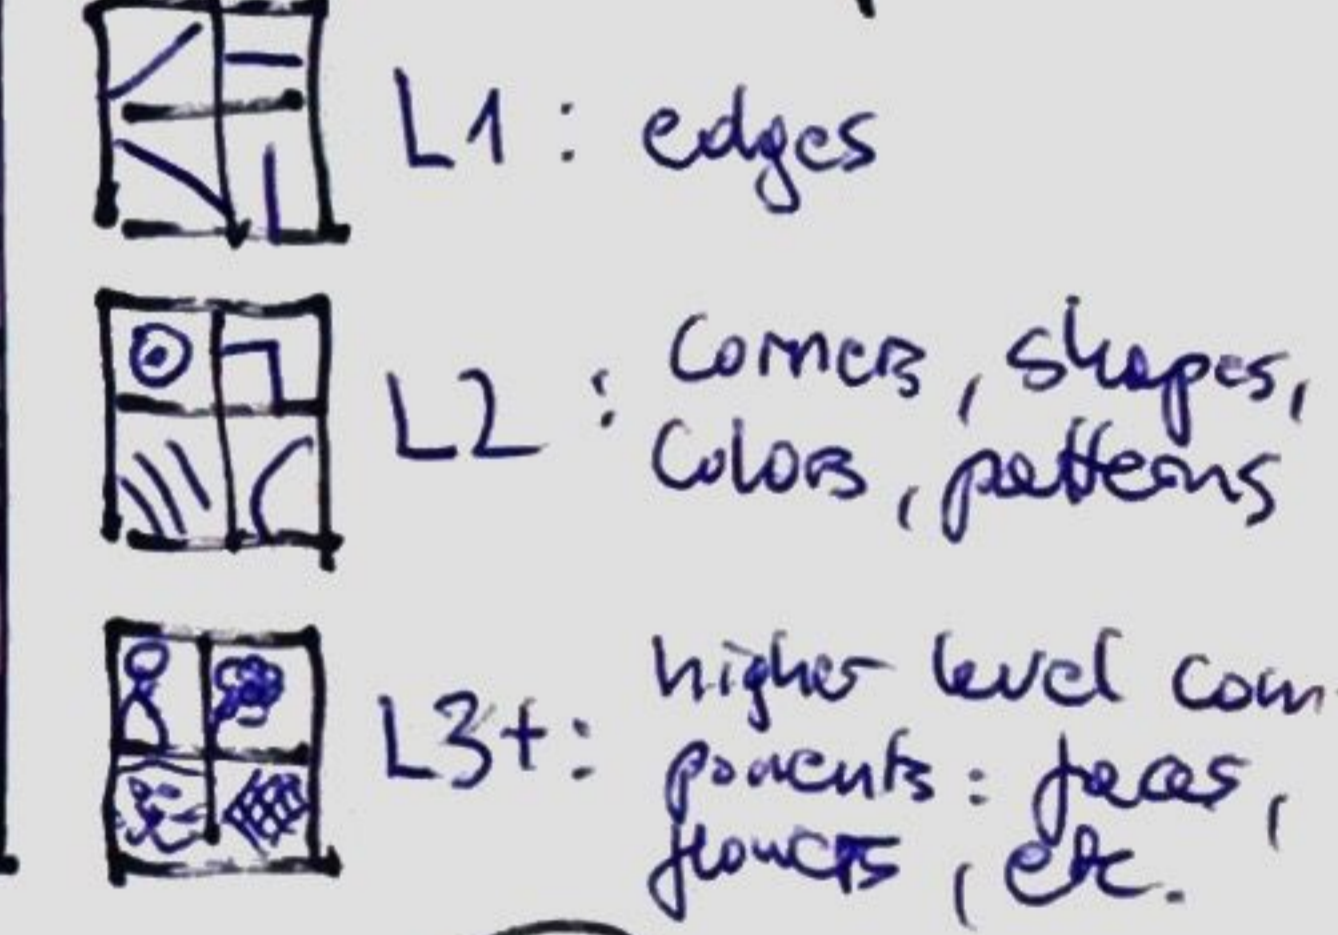 L1 : edges
L2 : corners, shapes,
colors, patterns
L3+: higher level com-
ponents: faces,
flowers, etc.